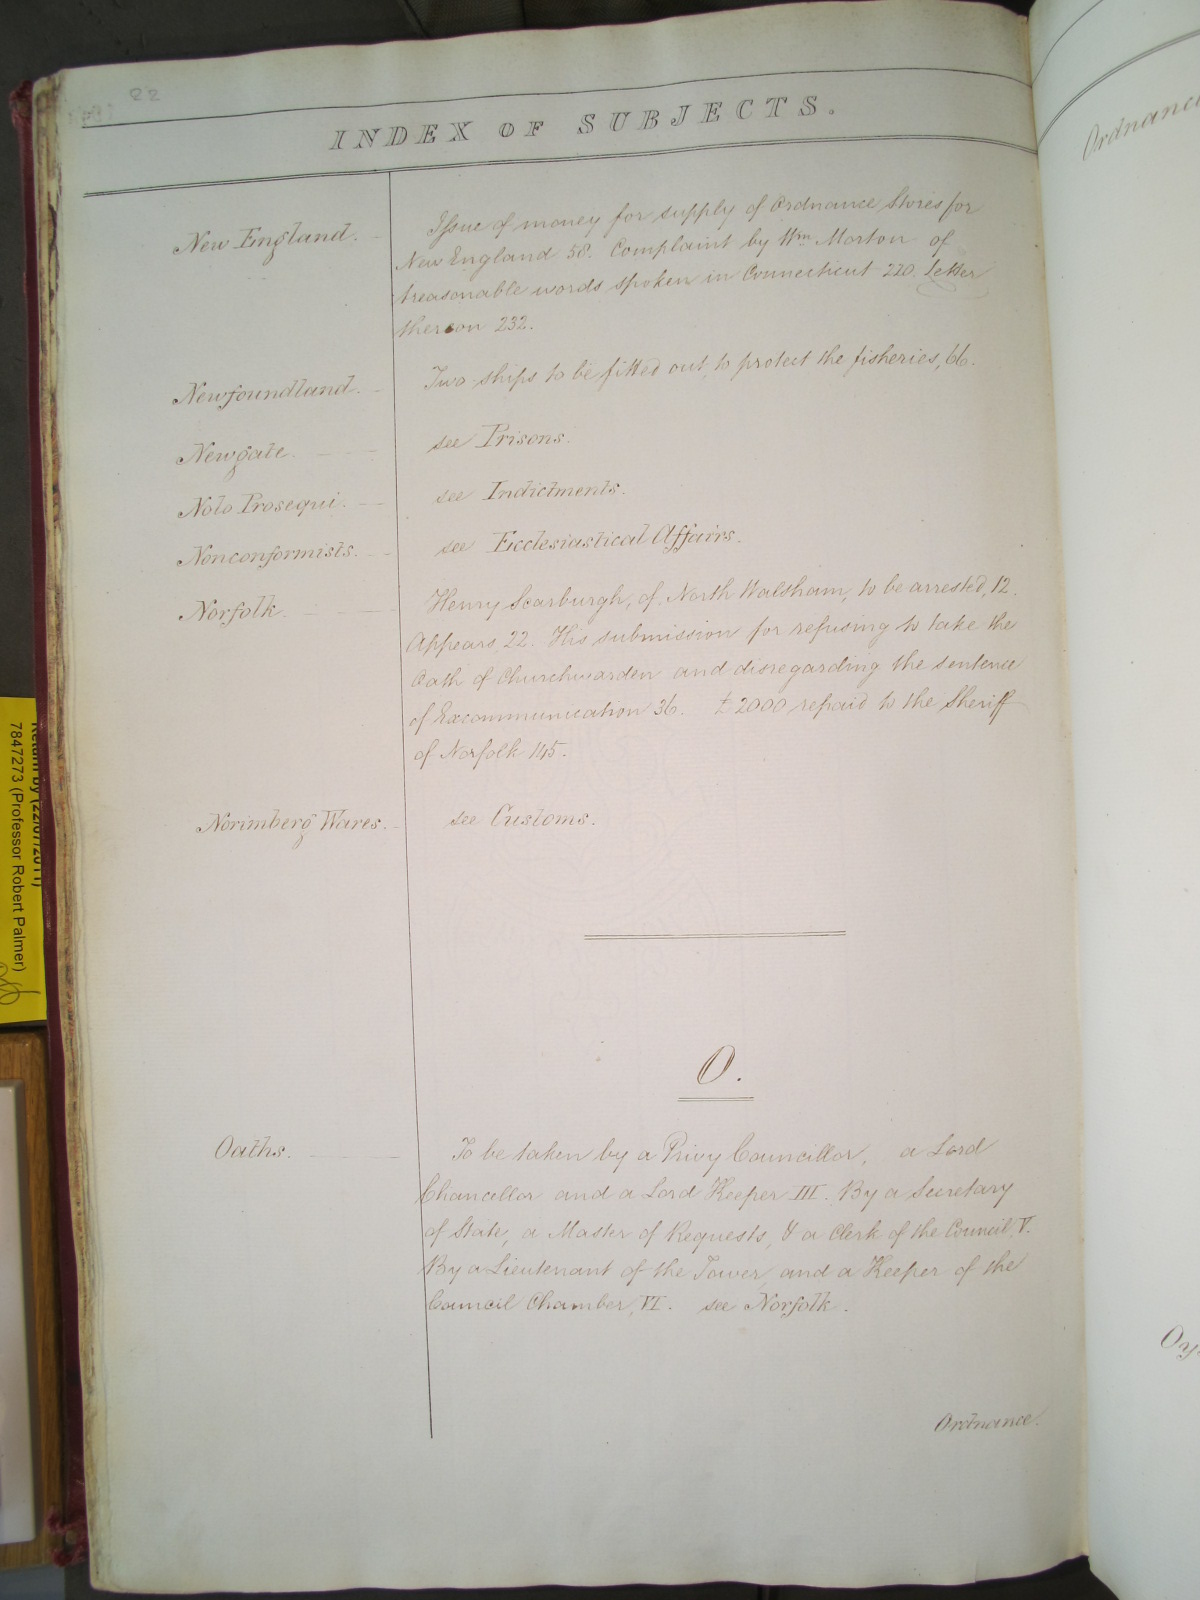 22
INDEX OF SUBJECTS.
New England.
Issue of money for supply of Ordnance Stores for
New England 58. Complaint by Wm Morton of
treasonable words spoken in Connecticut 220. Letter
thereon 232.
Newfoundland.
Two ships to be fitted out, to protect the fisheries, 66.
Newgate.
see Prisons.
Nolo Prosequi.
see Indictments.
Nonconformists.
see Ecclesiastical Affairs.
Norfolk.
Henry Scarburgh, of North Walsham, to be arrested, 12.
Appears, 22. His submission for refusing to take the
Oath of Churchwarden and disregarding the sentence
of Excommunication 36. £2000 repaid to the Sheriff
of Norfolk 145.
Norimberg Wares.
see Customs.
O.
Oaths.
To be taken by a Privy Councillor, a Lord
Chancellor and a Lord Keeper III. By a Secretary
of State, a Master of Requests, & a Clerk of the Council, V.
By a Lieutenant of the Tower, and a Keeper of the
Council Chamber, VI. see Norfolk.
Ordnance.
Ordnance
Oy
Return by (22/07/2011)
7847273 (Professor Robert Palmer)